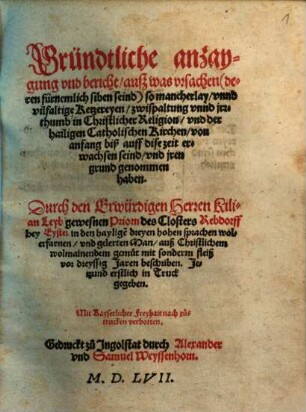 Gründtliche anzay-
gung vnd bericht / auß was vrsachen (de-
ren fürnemlich siben seind) so mancherlay / vnnd
vilfaltige Ketzereyen / zwispaltung vnnd jrr-
thumb in Christlicher Religion / vnd der
hailigen Catholischen Kirchen / von
anfang biß auff dise zeit er-
wachsen seind / vnd jren
grund genommen
haben.
Durch den Erwürdigen Herren Kili-
an Leyb gewesnen Priorn des Closters Rebdorff
bey Eystet in den haylige dreyen hohen sprachen wol
erfarnen / vnd gelerten Man / auß Christlichem
wolmainendem gemüt mit sonderm fleiß
vor dreyssig Jaren beschriben. Je-
tzund erstlich in Truck
gegeben.
Mit Kayserlicher Freyhait nach zů-
trucken verbotten.
Gedruckt zů Ingolstat durch Alexander
vnd Samuel Weyssenhorn.
M. D. LVII.